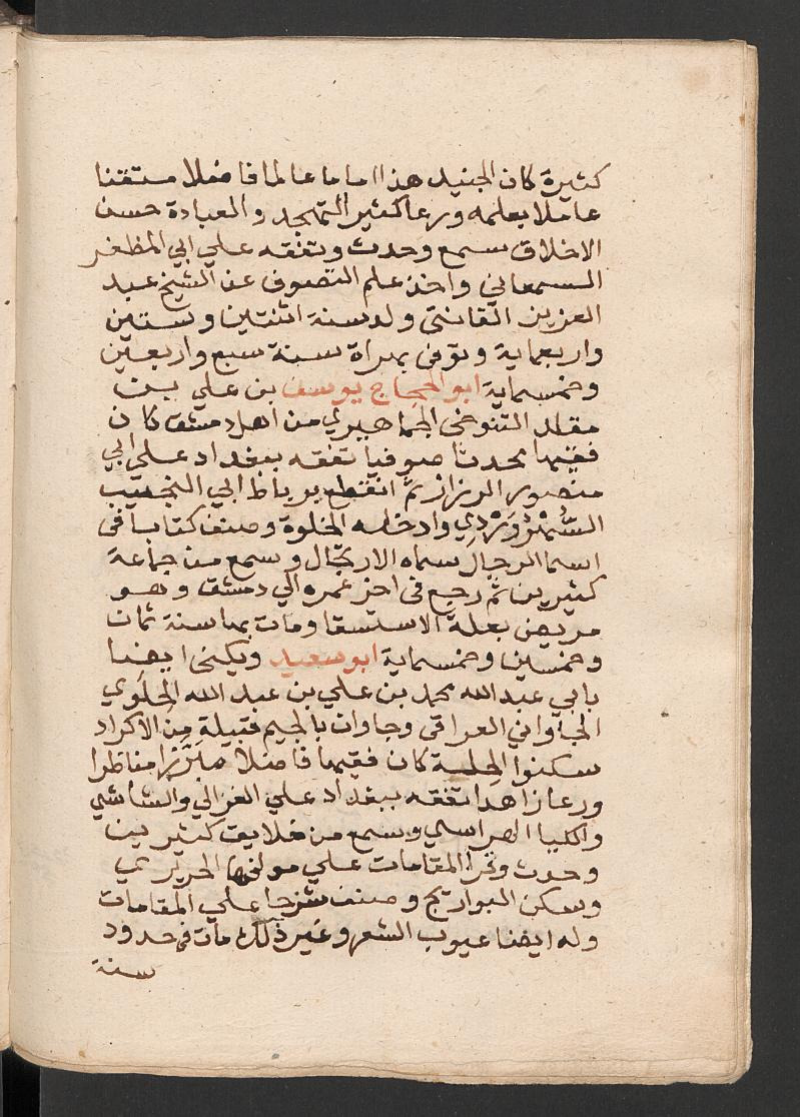 كثيرة كان الجنيد هذا اماما عالما فاضلا متقنا
عاملا بعلمه ورعا كثير التهجد والعبادة حسن
الاخلاق سمع وحدث وتفقه علي ابي المظفر
السمعاني واخذ علم التصوف عن الشيخ عبد
العزيز القائني ولد سنة اثنتين وستين
واربعماية وتوفي بهراة سنة سبع واربعين
وخمسماية ابو الحجاج يوسف بن علي بن
مقلد التنوخي الجماهيري من اهل دمشق كان
فقيها محدثا صوفيا تفقه ببغداد علي ابي
منصور الرزاز ثم انقطع برباط ابي النجيب
السُّهْرَوَرْدِي وادخله الخلوة وصنف كتابا في
اسما الرجال سماه الارتجال وسمع من جماعة
كثيرين ثم رجع في اخر عمره الي دمشق وهو
مريض بعلة الاستسقا ومات بها سنة ثمان
وخمسين وخمسماية ابو سعيد ويكني ايضا
بابي عبد الله محمد بن علي بن عبد الله الحلوي
الجاواني العراقي وجاوان بالجيم قبيلة من الاكراد
سكنوا الحلة كان فقيها فاضلا مبرزا مناظرا
ورعا زاهدا تفقه ببغداد علي الغزالي والشاشي
والكيا الهراسي وسمع من خلايق كثيرين
وحدث وقرا المقامات علي مولفها الحريري
وسكن البوازيج وصنف شرحا علي المقامات
وله ايضا عيوب الشعر وغير ذلك مات في حدود
سنة